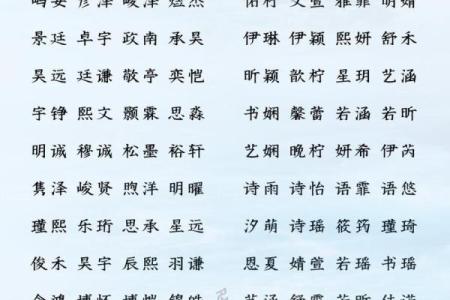 彦泽 峻泽 煜然 佑柠 文萱 雅霏 明婧
景廷 卓宇 政南 承昊 伊琳 伊颖 熙妍 舒禾
昊远 廷谦 敬亭 奕恺 昕颖 歆柠 星玥 艺涵
宇铮 熙文 颢霖 思淼 书娴 馨蕾 若涵 若昕
明诚 穆诚 松墨 裕轩 艺娴 晚柠 妍希 伊芮
隽泽 峻贤 煦洋 明曜 诗雨 诗怡 语霏 语悠
瑾熙 乐珩 思承 星远 汐萌 诗瑶 筱筠 瑾琦
俊禾 昊宇 辰熙 羽谦 恩夏 婧萱 若瑶 书瑶